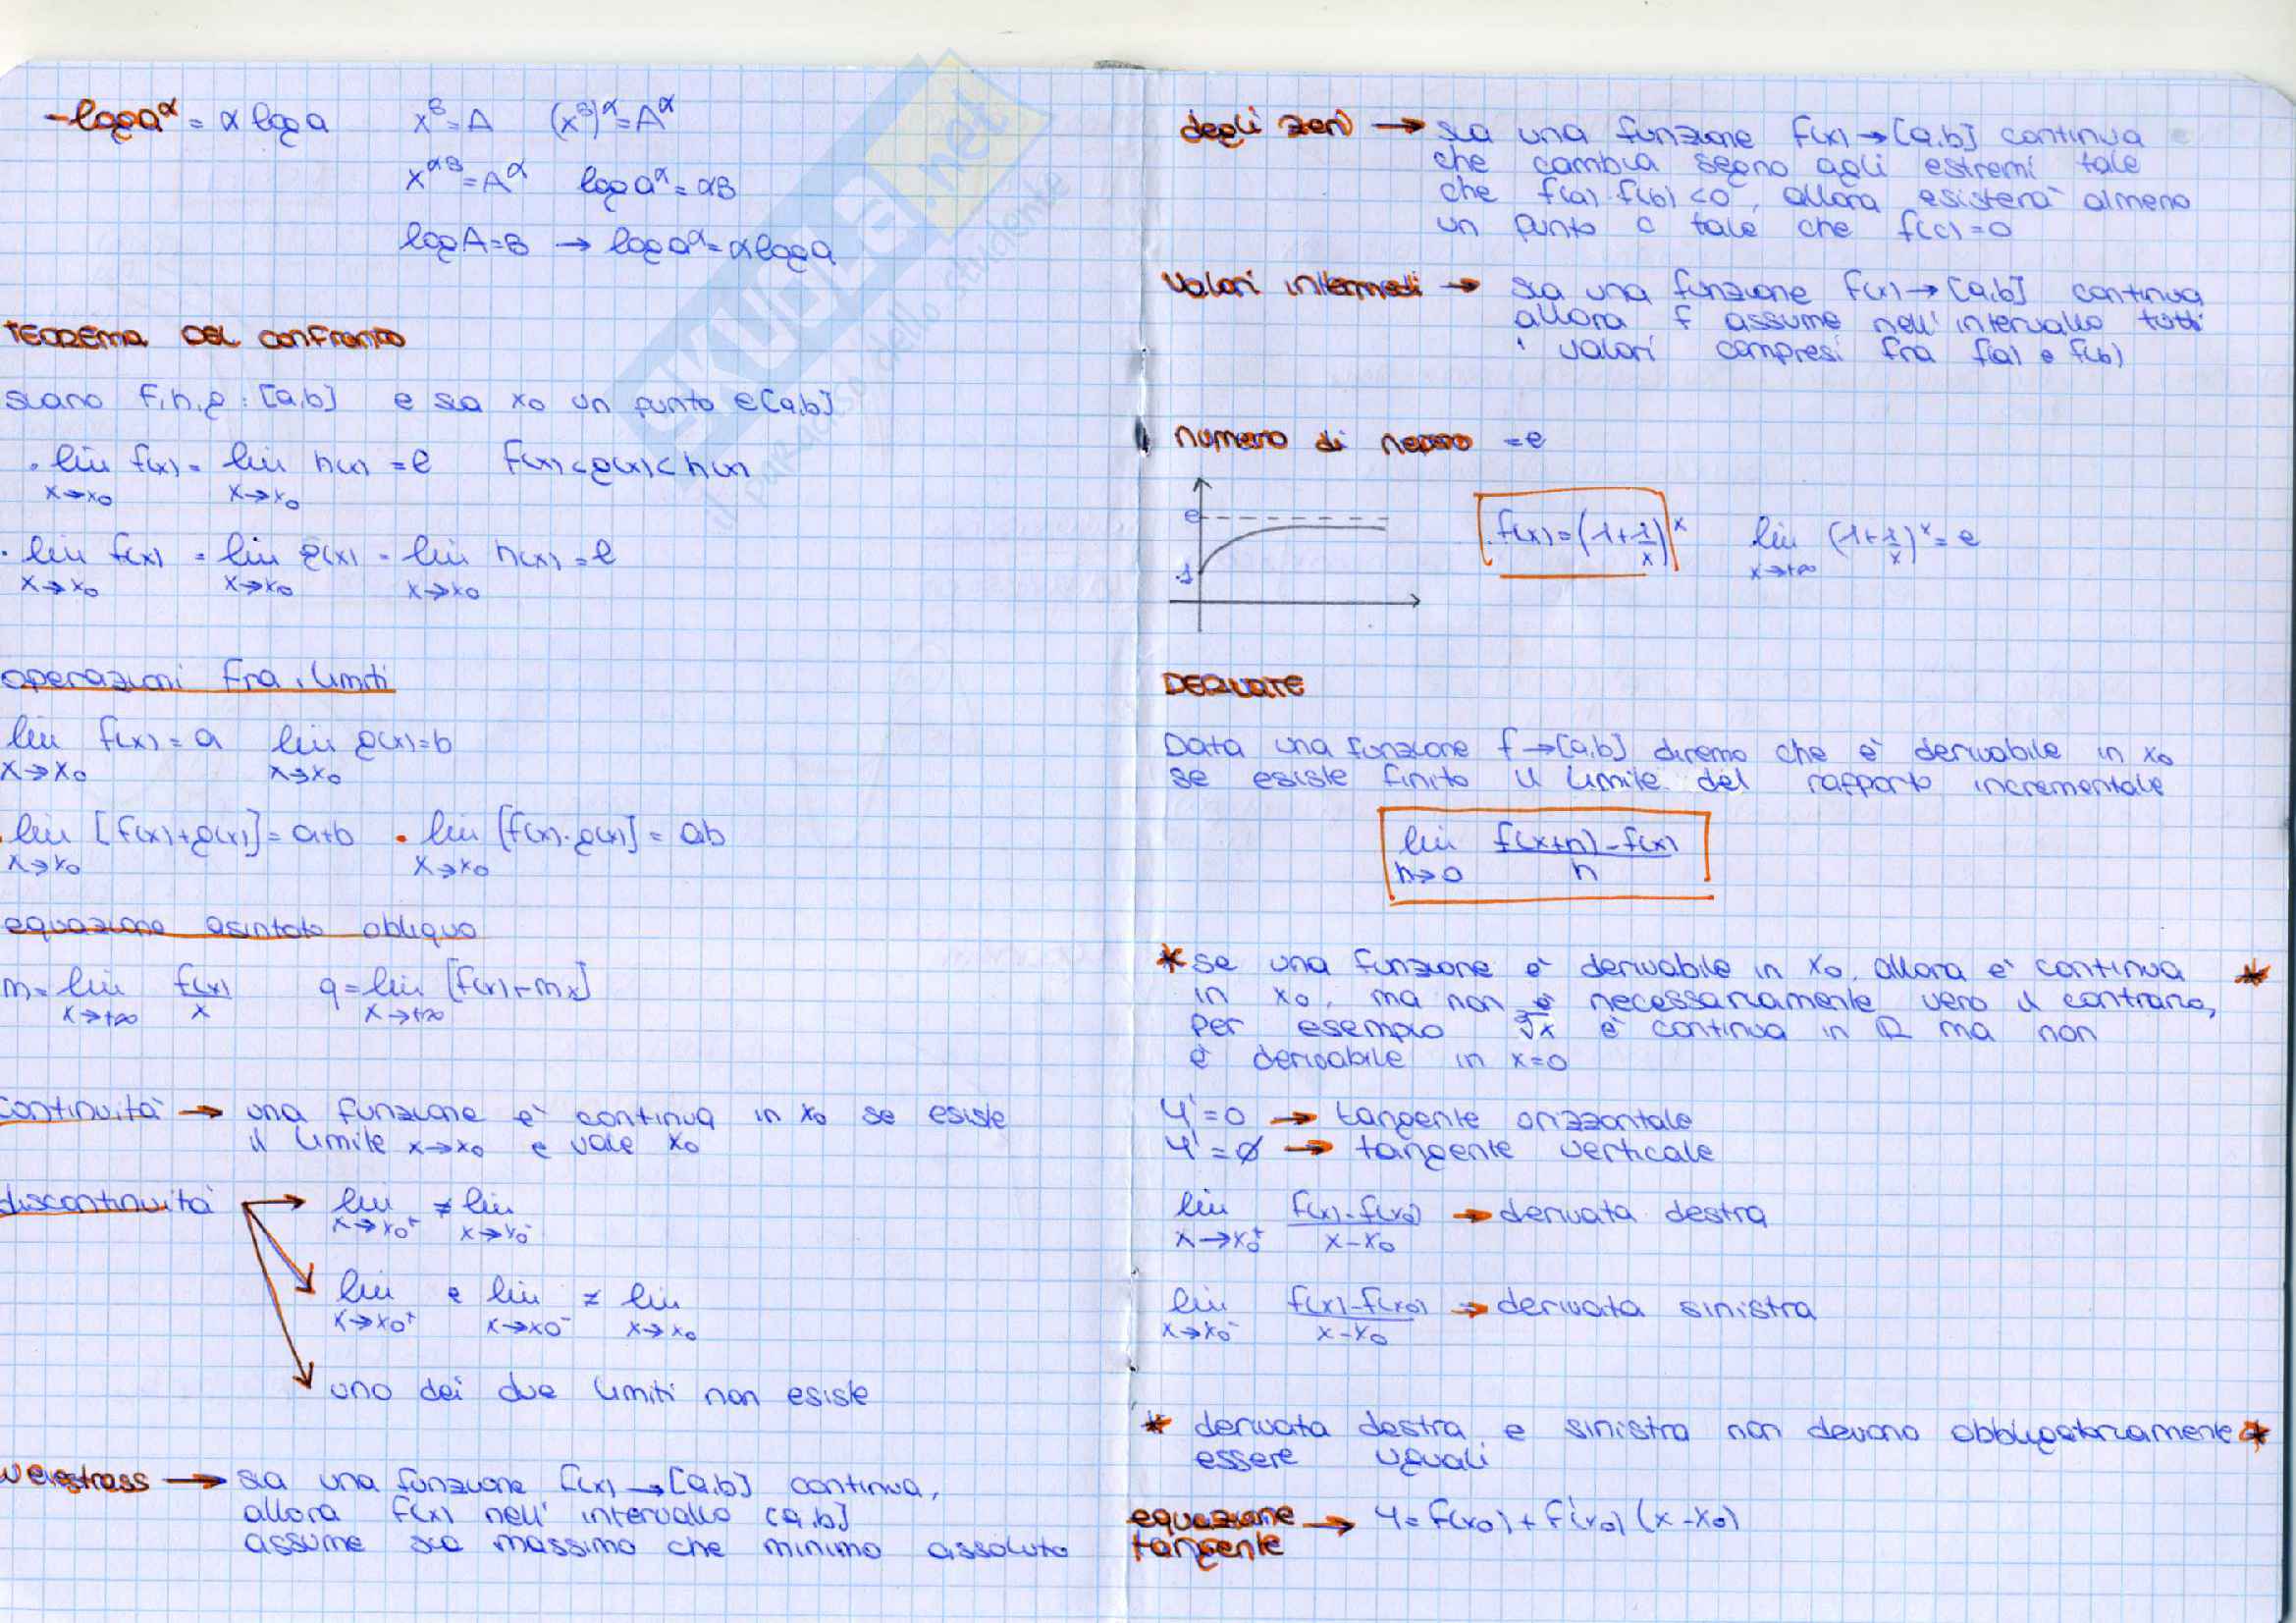 -log a^α = α log a   x^B = A   (x^B)^α = A^α
x^αB = A^α   log a^α = αB
log A = B → log a^α = α log a
TEOREMA DEL confronto
siano f, h, g : [a,b] e sia x₀ un punto ∈ [a,b]
. lim x→x₀ f(x) = lim x→x₀ h(x) = l   f(x) < g(x) < h(x)
. lim x→x₀ f(x) = lim x→x₀ g(x) = lim x→x₀ h(x) = l
operazioni fra i limiti
lim x→x₀ f(x) = a   lim x→x₀ g(x) = b
. lim x→x₀ [f(x)+g(x)] = a+b   . lim x→x₀ [f(x)·g(x)] = ab
equazione asintoto obliquo
m = lim x→+∞ f(x)/x   q = lim x→+∞ [f(x)-mx]
continuità → una funzione è continua in x₀ se esiste
il limite x→x₀ e vale x₀
discontinuità → lim x→x₀⁺ ≠ lim x→x₀⁻
lim x→x₀⁺ e lim x→x₀⁻ ≠ lim x→x₀
uno dei due limiti non esiste
Weiestrass → sia una funzione f(x) → [a,b] continua,
allora f(x) nell'intervallo [a,b]
assume sia massimo che minimo assoluto
degli zeri → sia una funzione f(x) → [a,b] continua
che cambia segno agli estremi tale
che f(a)·f(b) < 0, allora esisterà almeno
un punto c tale che f(c) = 0
Valori intermedi → sia una funzione f(x) → [a,b] continua
allora f assume nell'intervallo tutti
i valori compresi fra f(a) e f(b)
numero di nepero = e
e
1
f(x) = (1+1/x)^x   lim x→+∞ (1+1/x)^x = e
DERIVATE
Data una funzione f → [a,b] diremo che è derivabile in x₀
se esiste finito il limite del rapporto incrementale
lim h→0 f(x+h)-f(x) / h
* se una funzione è derivabile in x₀ allora è continua *
in x₀, ma non è necessariamente vero il contrario,
per esempio ∛x è continua in R ma non
è derivabile in x=0
y'=0 → tangente orizzontale
y'=∅ → tangente verticale
lim x→x₀⁺ f(x)-f(x₀) / x-x₀ → derivata destra
lim x→x₀⁻ f(x)-f(x₀) / x-x₀ → derivata sinistra
* derivata destra e sinistra non devono obbligatoriamente *
essere uguali
equazione tangente → y = f(x₀) + f'(x₀) (x-x₀)
SKUOLA.net
il paradiso dello studente